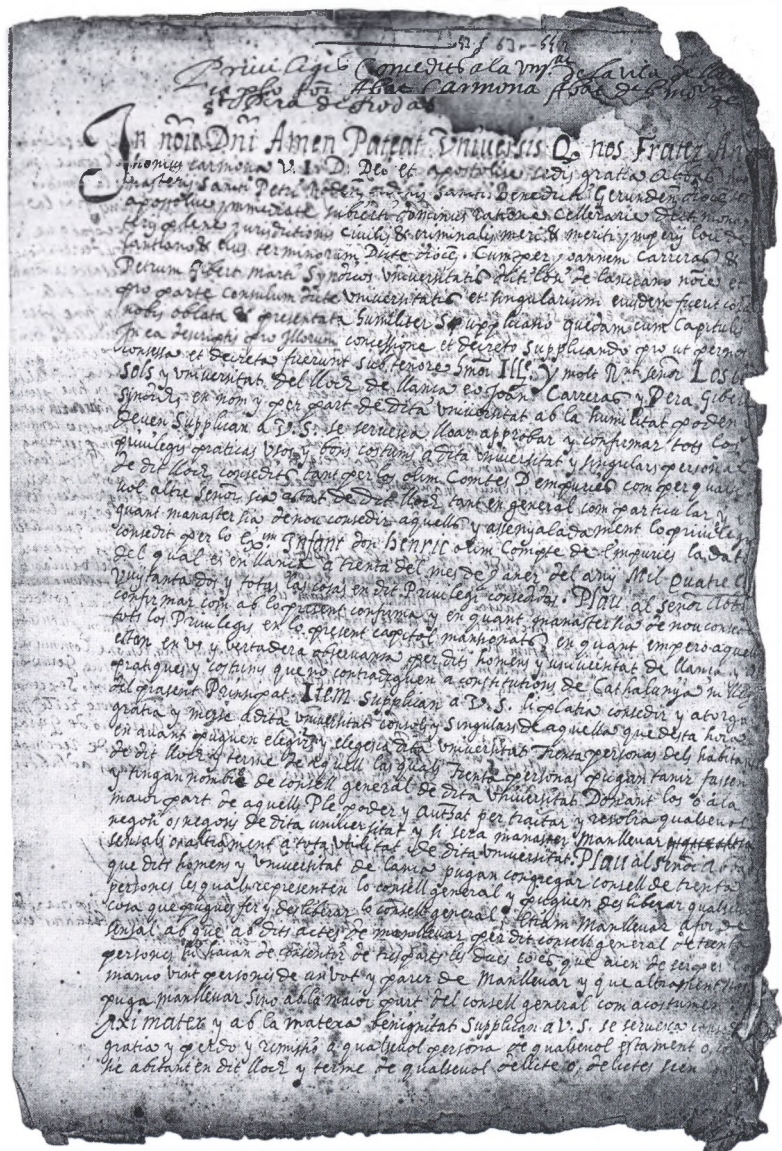 Privilegis Concedits a la Vnj.at de la vila de
per Abat Carmona Abat del
St Pera de Rodas
In nõie Dñi Amen Pateat Vniversis Q nos Frater An
thonius Carmona V. I. D. Deo et apostolice sedis gratia Abbas mo
nasterii Santi Petri Roden ordinis Santi Benedicti Gerunden dioc
apostolice immediate subiecti Dominus ratione Cellerarie dicti mona
sterij plene jurisdictionis civilis & criminalis meri & mixti ymperij loci de
lantiano & eius terminorum Dicte dioces. Cum per Joannem Carreras &
Petrum Gibert marti Syndicos Vniversitatis dicti loci de lanciano nõie et
pro parte Consulum dicte Vniversitatis et singularium eiusdem fuerit coram
nobis oblata & presentata humiliter Supplicatio quedam cum Capitulis
In ea descriptis pro Illorum concessione et decreto Supplicando pro ut per nos
concessa et decreta fuerunt sub tenore Smõi Ille. y molt Rnt señor Los con
sols y Vniversitat del lloch de llança e o Joan Carreras y Pera Gibert
Sindichs en nom y per part de dita Vniversitat ab la humilitat poden
Deven Supplican a V. S. se servesca lloar approbar y confirmar tots los
privilegis praticas Vsos y bons costums a dita Vniversitat y singulars personas
de dit lloch consedits tant per los olim Comtes D empuries com per qual
vol altre Señor sia estat de dit lloch tant en general com particular y
quant manaster sia de nou consedir aquells y assenyaladament lo privilegi
consedit per lo Ex.im Infant don henric olim Compte de Empuries la data
del qual es en llança a trenta del mes de Janer del any Mil quatre cens
vuytanta dos y totas las cosas en dit Privilegi consedidas. Plau al Señor Abat
confirmar com ab lo present confirma y en quant manaster sia de nou consedeix
tots los Privilegis en lo present capitol mansionats en quant empero aquells
estan en vs y vertadera observansa per dits homens y universitat de llança y
pratiques y costums que no contradiguen a constitutions de Cathalunja ni
del present Prinsipat. Item Supplican a V. S. li placia consedir y atorgar
gratia y merse a dita vniversitat consols y Singulars de aquella que desta hora
en avant puguen eligir y elegesca dita Vniversitat Trenta personas dels habitants
de dit lloch y terme de aquell las quals Trenta personas pugan tanir fassen
y tingan nombre de consell general de dita Vniversitat Donant los o a la
maior part de aquells Ple poder y Auth.at per traitar y resolrra qualsevol
negoti os negotis de dita universitat y si sera manaster Manllevar
sensals o altrament a tota vtilitat de dita Vniversitat. Plau al Señor Abat
que dits homens y Vniversitat de lansa pugan congregar consell de trenta
persones les quals representen lo consell general y puguen desliberar qualsevol
cosa que pugues fer y desliberar lo consell general. Etiam Manllevar a for de
sensal ab que ab dits actes de manllevar per dit consell general de trenta
persones hi haian de consentir de tres parts les dues co es que aien de ser per lo
manco vint persones de un vot y parer de Manllevar y que altrament no
puga manllevar Sino ab la maior part del consell general com acostumen
Axi mateix y ab la mateixa benignitat Supplican a V. S. se servesca consedir
gratia y perdo y remissio a qualsevol persona de qualsevol estament o
sie abitant en dit lloch y terme de qualsevol delicte o, delictes sien